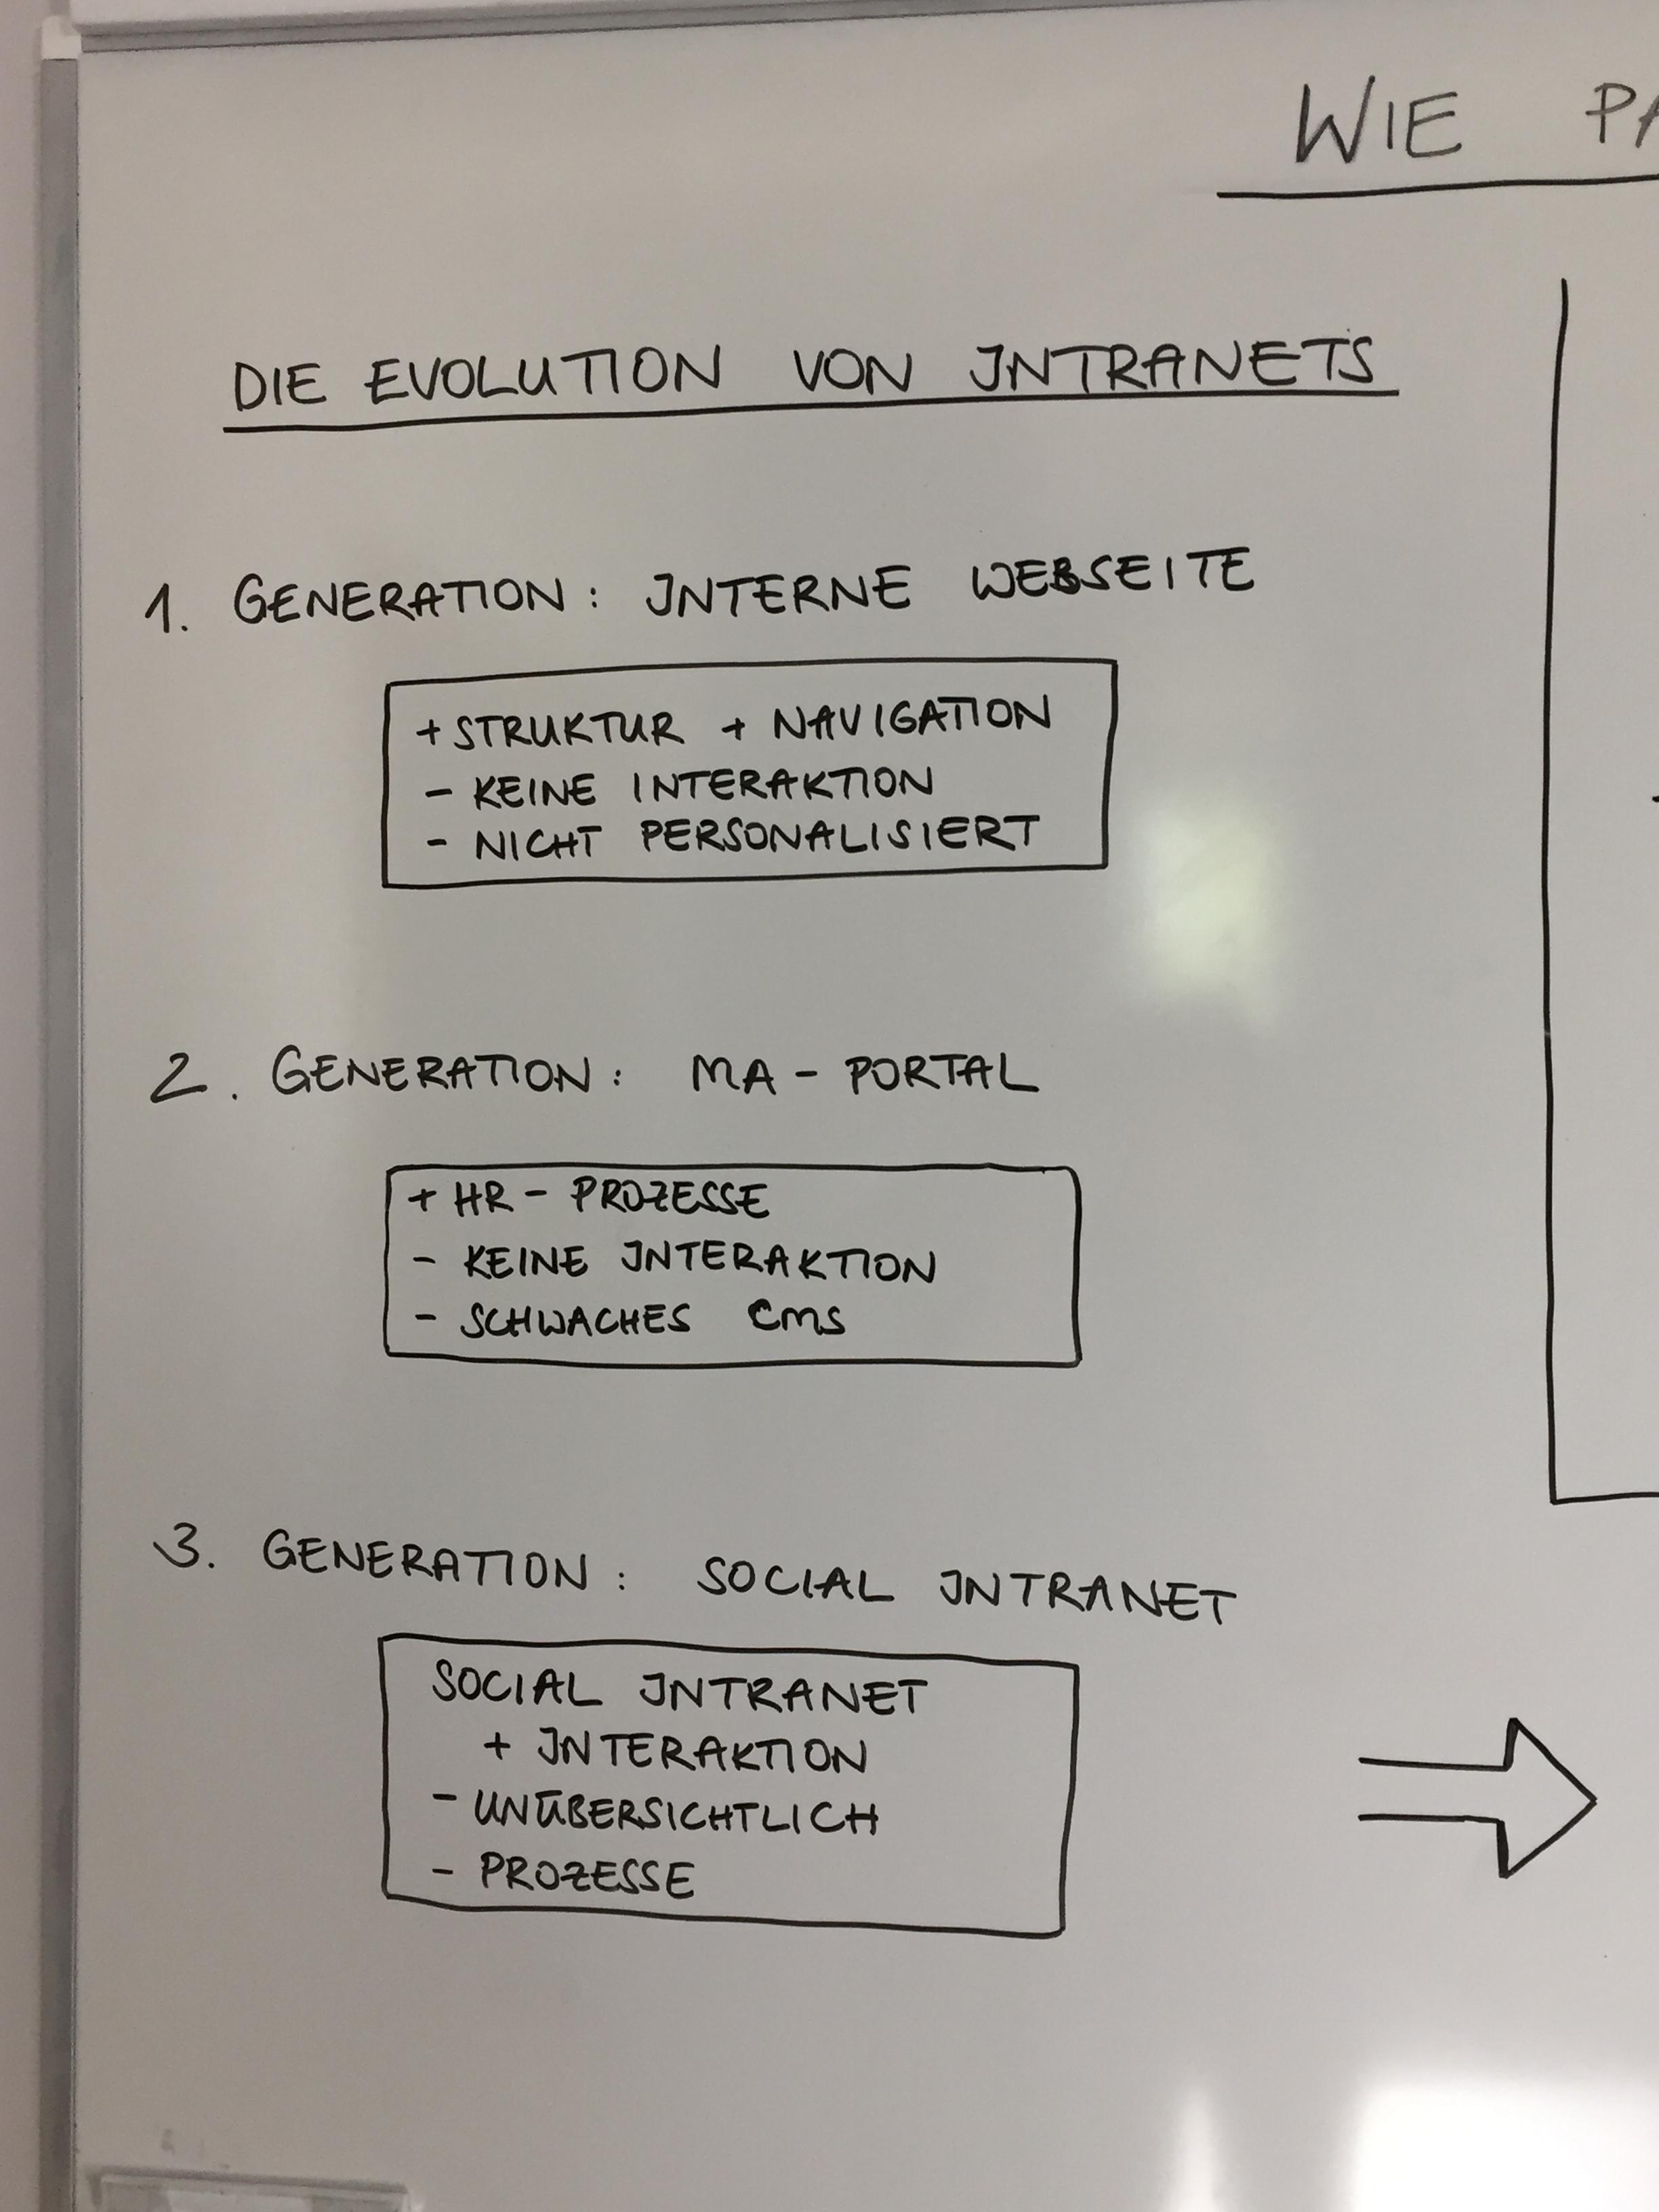 WIE
DIE EVOLUTION VON INTRANETS
1. GENERATION: INTERNE WEBSEITE
+ STRUKTUR + NAVIGATION
- KEINE INTERAKTION
- NICHT PERSONALISIERT
2. GENERATION: MA - PORTAL
+ HR - PROZESSE
- KEINE INTERAKTION
- SCHWACHES CMS
3. GENERATION: SOCIAL INTRANET
SOCIAL INTRANET
+ INTERAKTION
- UNÜBERSICHTLICH
- PROZESSE